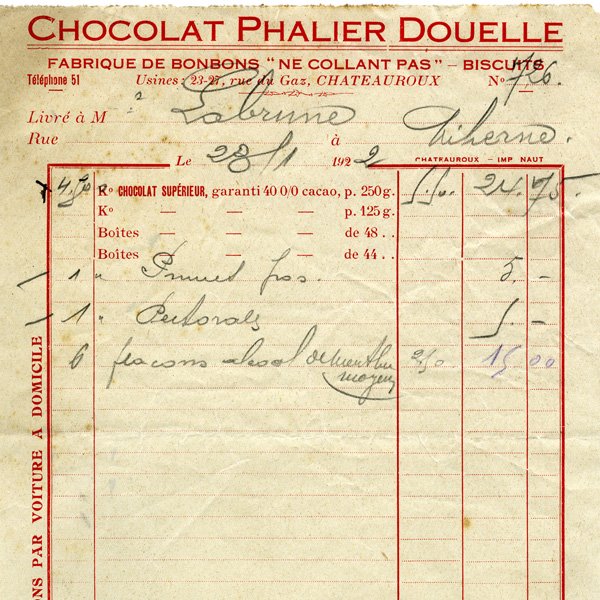 CHOCOLAT PHALIER DOUELLE
FABRIQUE DE BONBONS "NE COLLANT PAS" – BISCUITS
Téléphone 51 Usines: 23-27, rue du Gaz, CHATEAUROUX No 726
Livré à M Labrune
Rue à
Le 28/1 1922 CHATEAUROUX – IMP NAUT
4.50 Ko CHOCOLAT SUPÉRIEUR, garanti 40 0/0 cacao, p. 250 g. 5.50 24.75
Ko — — — p. 125 g.
Boîtes — — — de 48 . .
Boîtes — — — de 44 . .
1 " 5. –
1 " Pectorals 5. –
6 flacons alcool de menthe 2.50 15 00
moyen
ONS PAR VOITURE A DOMICILE